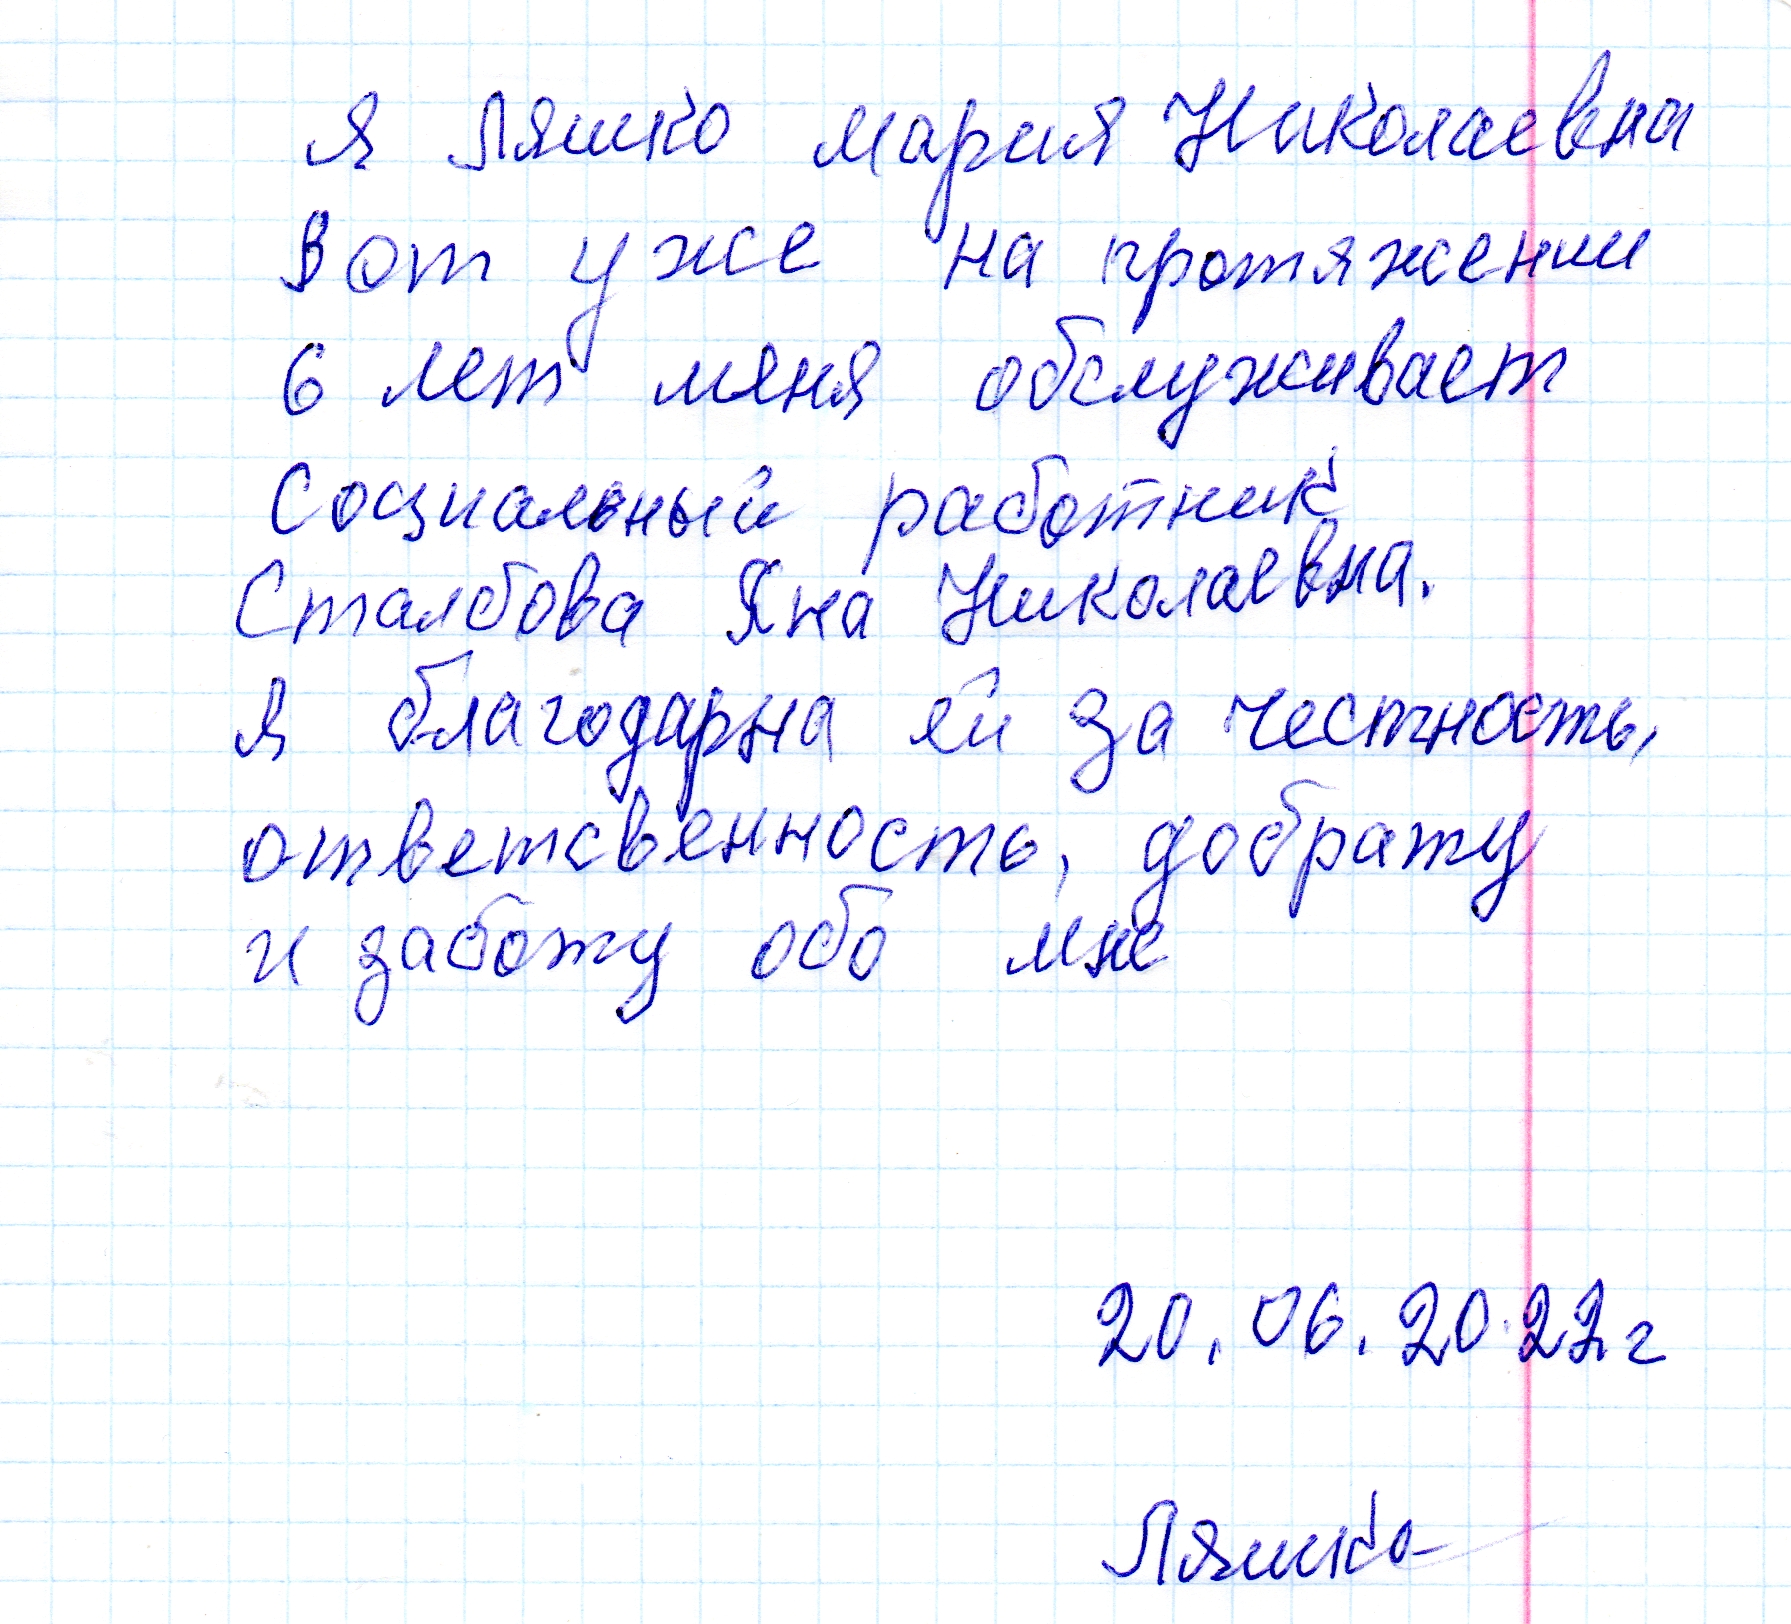 Я Ляшко Мария Николаевна
Вот уже на протяжении
6 лет меня обслуживает
Социальный работник
Сталбова Яна Николаевна.
Я благодарна ей за честность,
ответсвенность, доброту
и заботу обо мне
20.06.2022.г
Ляшко